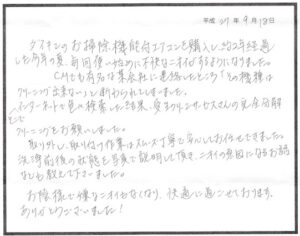 平成27年9月18日
ダイキンのお掃除機能付エアコンを購入し、約2年経過
した今年の夏、毎回使い始めに不快なニオイがするようになりました。
CMでも有名な某会社に連絡したところ「その機種は
クリーニング出来ない」と断わられてしまいました。
インターネットで色々検索した結果、 サービスさんの完全分解
クリーニングをお願いしました。
取り外し、取り付け作業はスムーズ丁寧で安心してお任せできました。
洗浄前後の状態を写真で説明して頂き、ニオイの原因になるお話
なども教えて下さいました。
お陰様で嫌なニオイもなくなり、快適に過ごせております。
ありがとうございました!